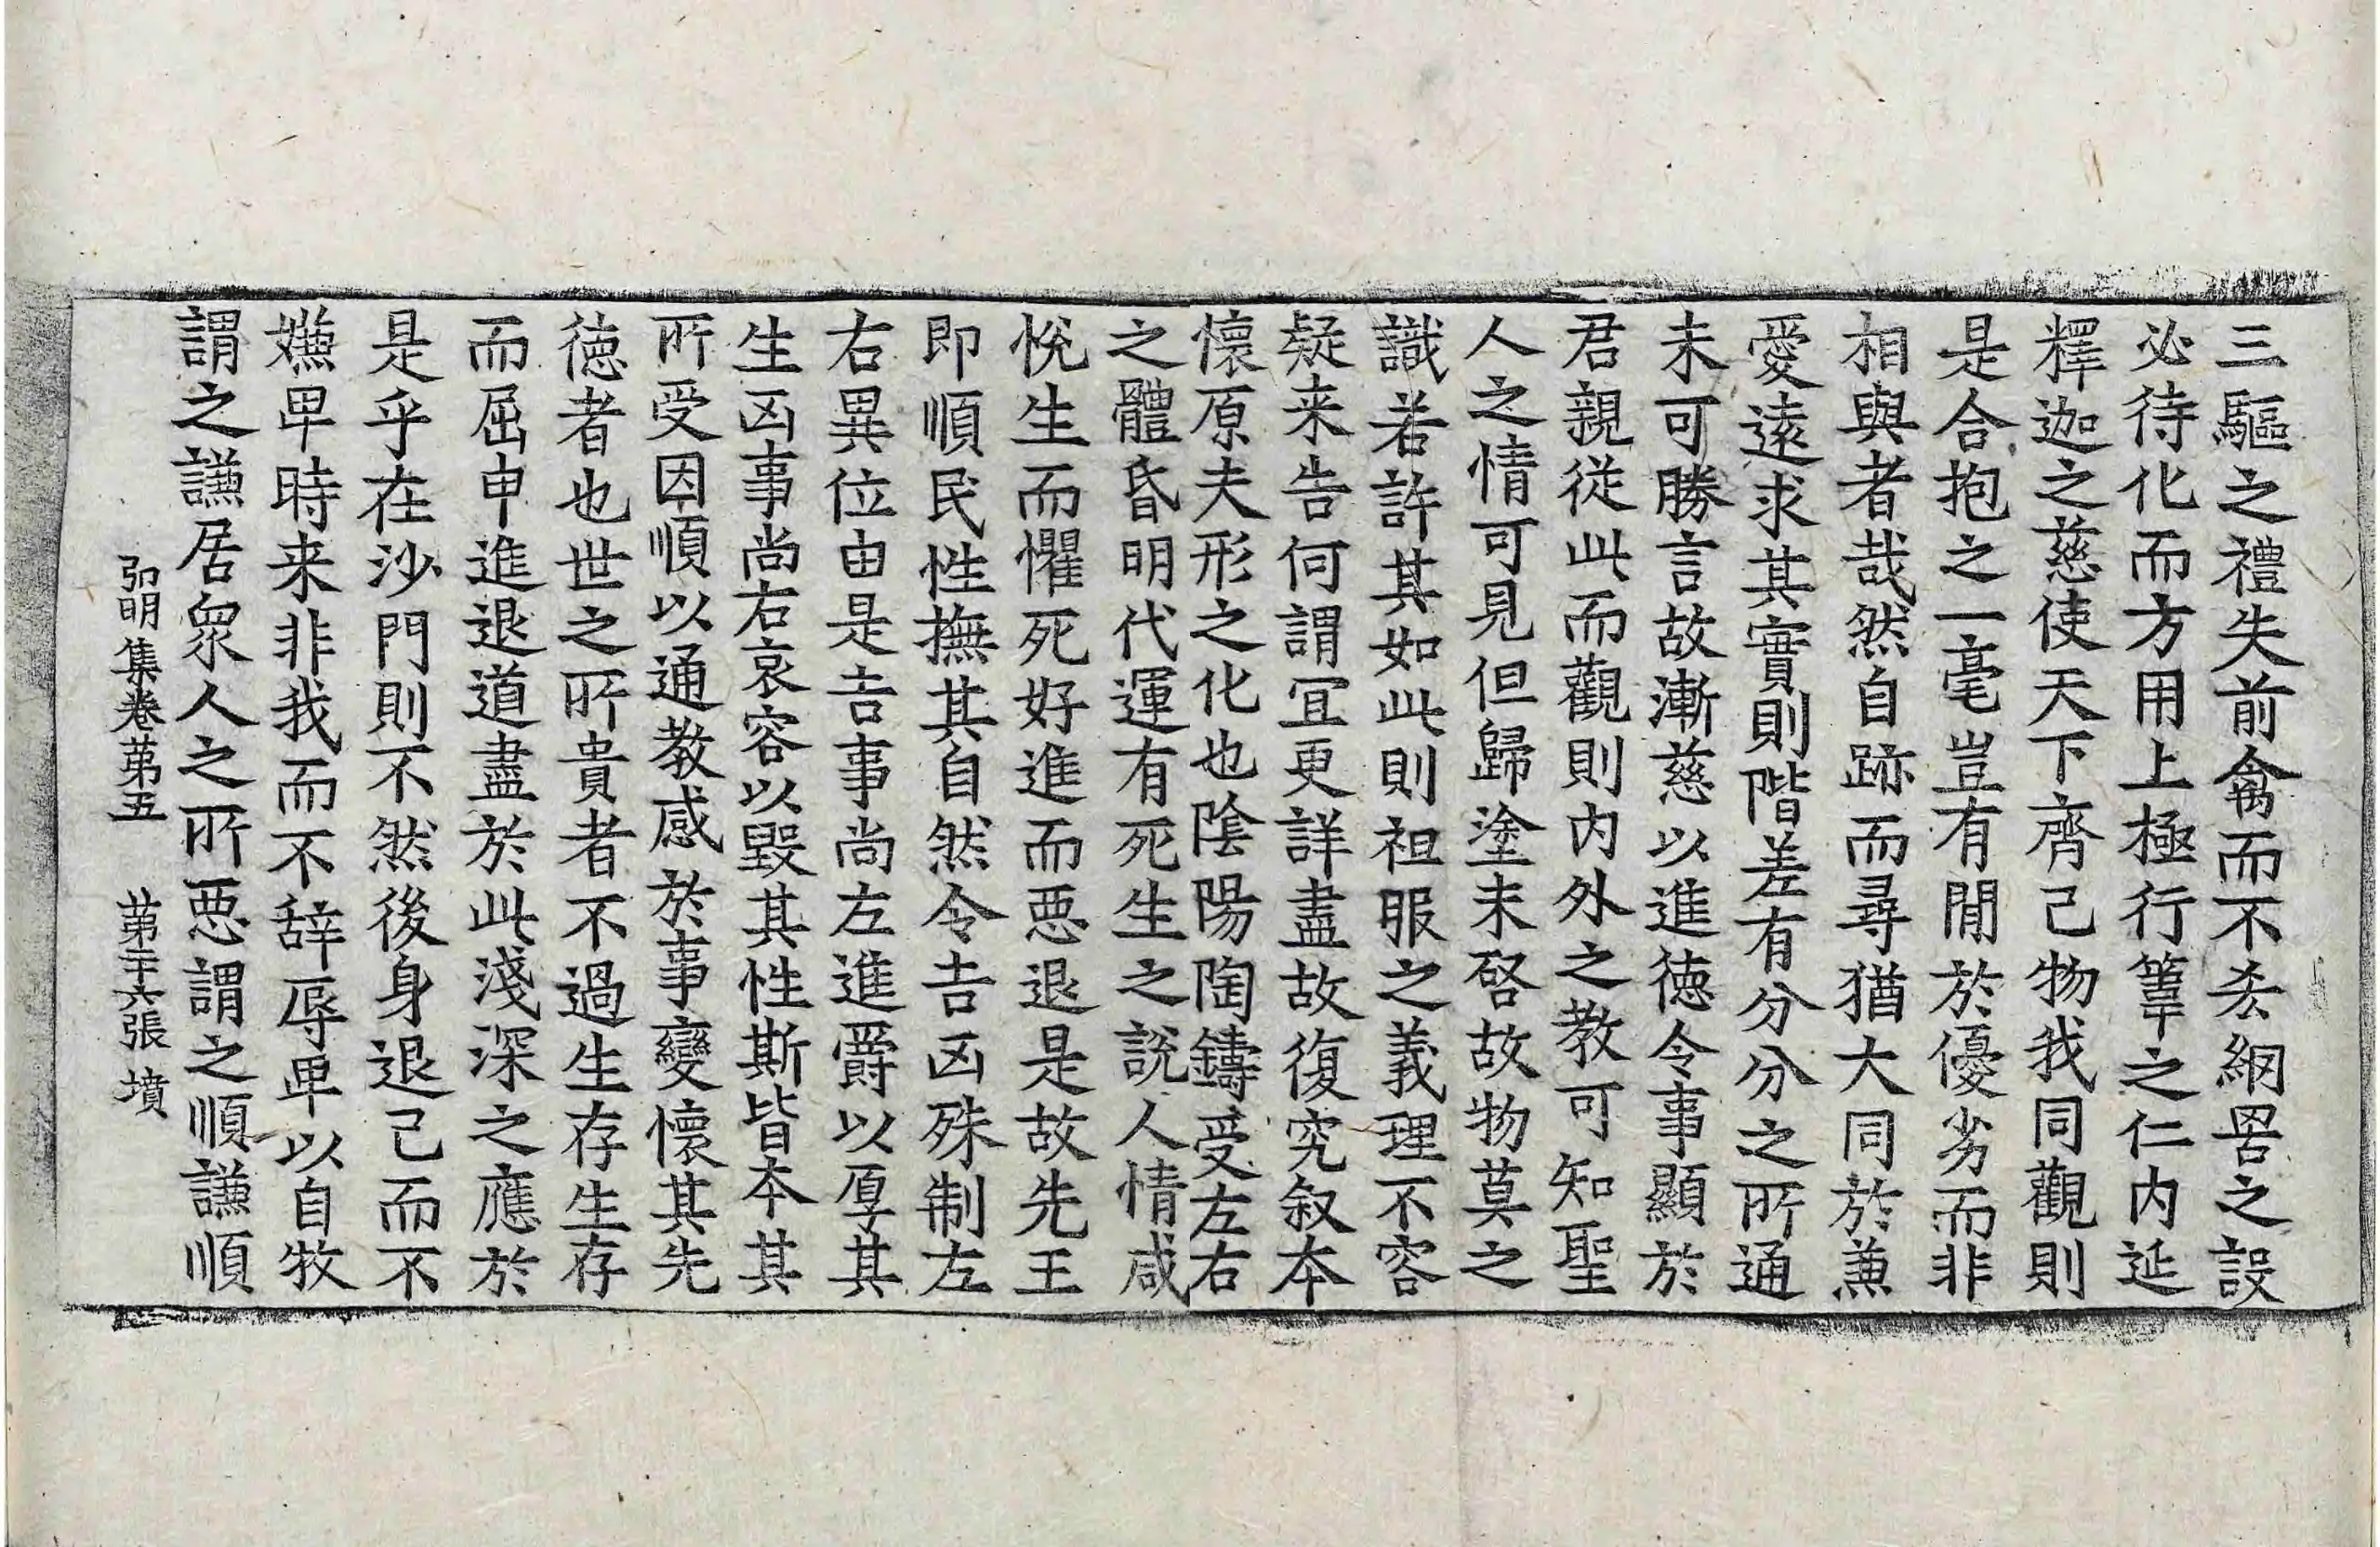 三驅之禮失前禽而不去網罟之設
必待化而方用上極行葦之仁内延
釋迦之慈使天下齊己物我同觀則
是合抱之一毫豈有閒於優劣而非
相與者哉然自跡而尋猶大同於兼
愛遠求其實則階差有分分之所通
未可勝言故漸慈以進徳令事顯於
君親從此而觀則内外之教可知聖
人之情可見但歸塗未啓故物莫之
識若許其如此則袒服之義理不容
疑来告何謂冝更詳盡故復究叙本
懐原夫形之化也陰陽陶鑄受左右
之體昏明代運有死生之說人情咸
悅生而懼死好進而惡退是故先王
即順民性撫其自然令吉凶殊制左
右異位由是吉事尚左進爵以厚其
生凶事尚右哀容以毀其性斯皆本其
所受因順以通教感於事變懷其先
徳者也世之所貴者不過生存生存
而屈申進退道盡於此淺深之應於
是乎在沙門則不然後身退己而不
嫌卑時来非我而不辞辱卑以自牧
謂之謙居衆人之所惡謂之順謙順
弘明集卷第五 第二十六張 墳